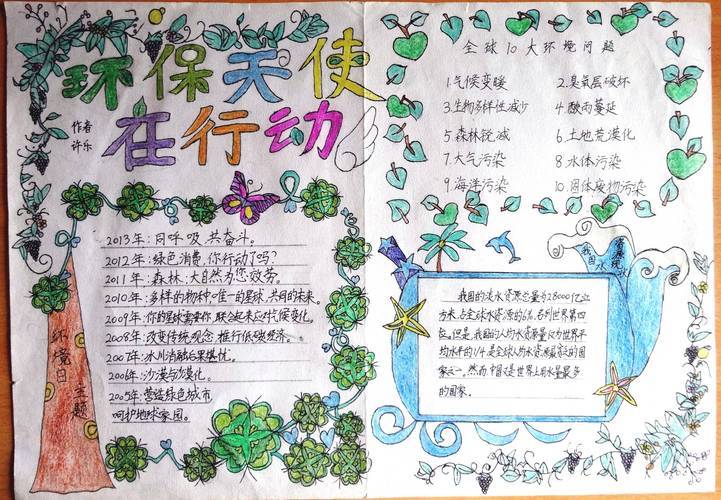 环保天使
在行动
作者
许乐
2013年:同呼吸 共奋斗。
2012年:绿色消费,你行动了吗?
2011年:森林:大自然为您效劳。
2010年:多样的物种·唯一的星球,共同的未来。
2009年:你的星球需要你,联合起来应对气候变化。
2008年:改变传统观念 推行低碳经济。
2007年:冰川消融后果堪忧。
2006年:沙漠与荒漠化。
2005年:营造绿色城市
呵护地球家园。
环境日主题
全球10大环境问题
1.气候变暖 2.臭氧层破坏
3.生物多样性减少 4.酸雨蔓延
5.森林锐减 6.土地荒漠化
7.大气污染 8.水体污染
9.海洋污染 10.固体废物污染
我国水资源现
我国的淡水资源总量为28000亿立
方米,占全球水资源的6%,名列世界第四
位。但是,我国的人均水资源量仅为世界平
均水平的1/4,是全球人均水资源最贫乏的国
家之一。然而中国又是世界上用水量最多
的国家。